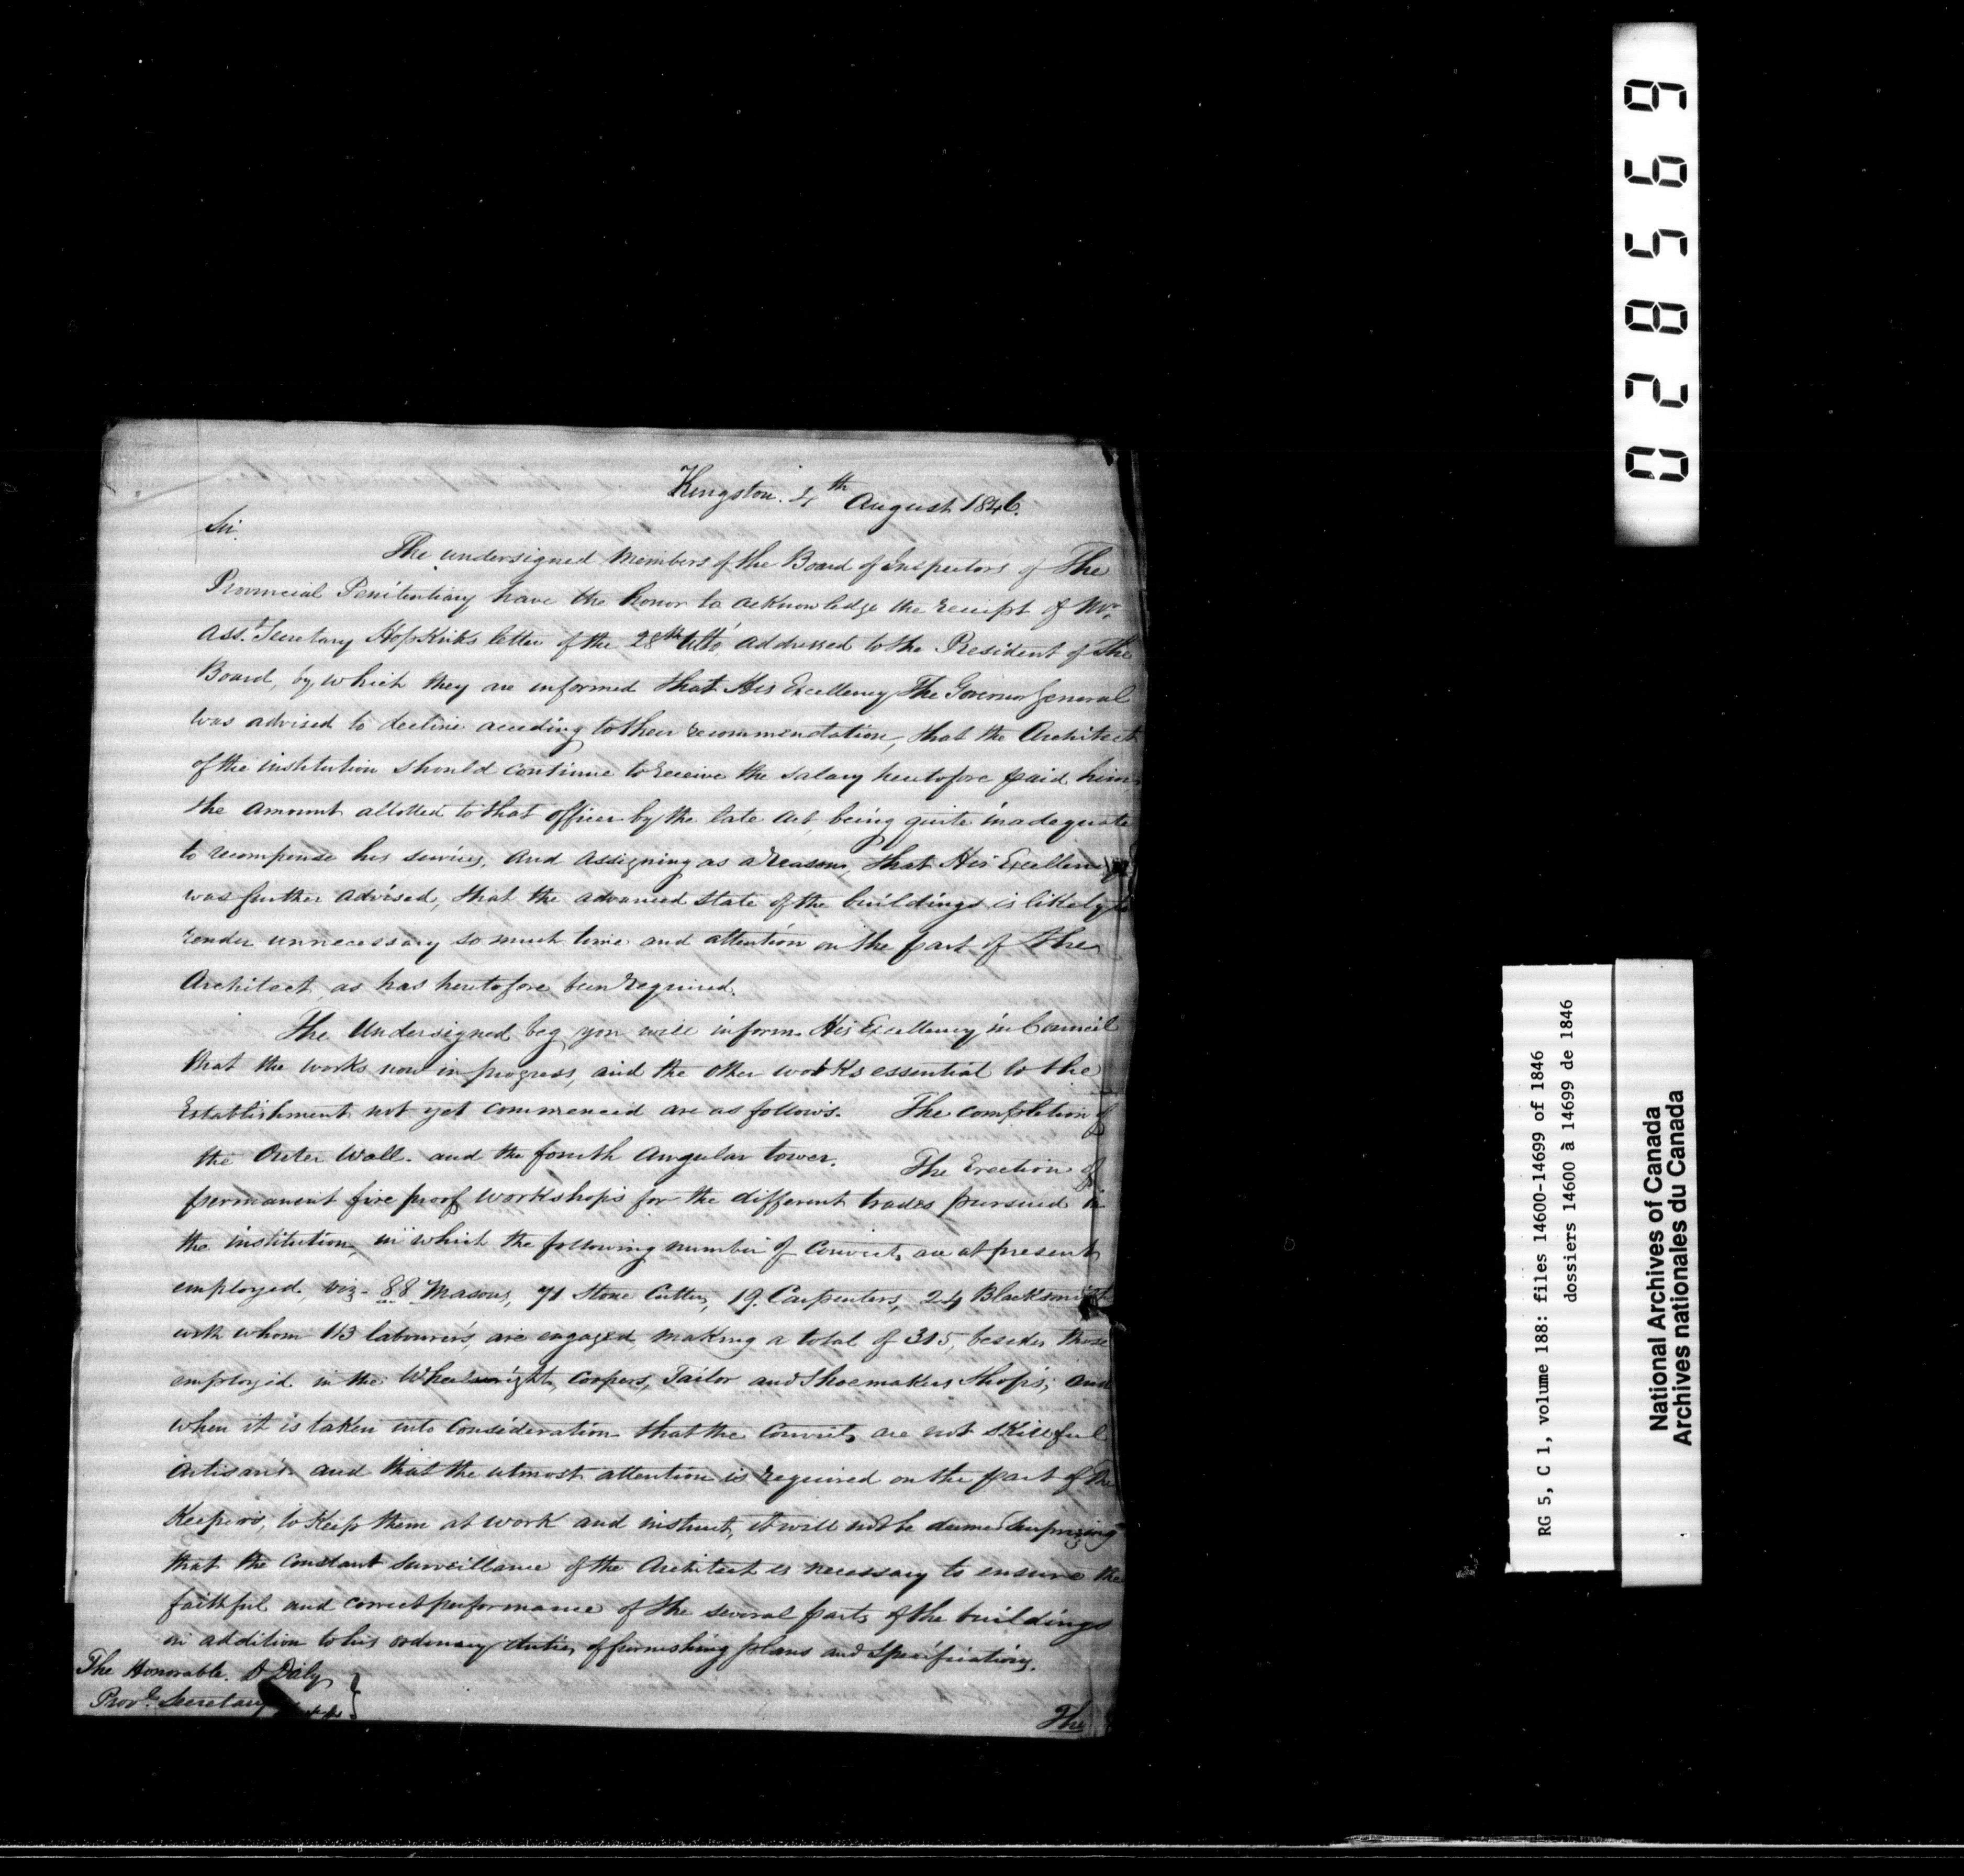 Kingston. 4th August 1846.
Sir.
The undersigned Members of the Board of Inspectors of The
Provincial Penitentiary have the honor to acknowledge the receipt of Mr.
Asst. Secretary HopKirks letter of the 28th Ulto. addressed to the President of the
Board, by which they are informed that His Excellency The Governor General
was advised to decline acceding to their recommendation, that the Architect
of the institution should continue to receive the salary heretofore paid him
the amount allotted to that officer by the late Act, being quite inadequate
to recompense his services, and assigning as a reason, that His Excellency
was further advised, that the advanced state of the buildings is likely to
render unnecessary so much time and attention on the part of the
Architect, as has heretofore been required.
The Undersigned beg you will inform His Excellency in Council
that the works now in progress, and the other works essential to the
Establishment not yet commenced are as follows. The completion of
the Outer Wall. and the fourth Angular tower. The Erection of
permanent fire proof workshops for the different trades pursued in
the institution, in which the following number of Convicts are at present
employed, viz. 88 Masons, 71 Stone Cutters, 19. Carpenters, 24 Blacksmiths
with whom 113 labourers, are engaged, making a total of 315, besides those
employed in the Wheelwright, Coopers, Tailor and Shoemakers Shops; and
when it is taken into Consideration that the Convicts are not skillful
Artisans and that the utmost attention is required on the part of the
Keepers, to Keep them at work and instruct, it will not be deemed surprizing
that the constant surveillance of the Architect is necessary to ensure the
faithful and correct performance of the several parts of the buildings
in addition to his ordinary duties of furnishing plans and specifications.
The Honorable. D Daly
Provl. Secretary
The
028569
RG 5, C 1, volume 188: files 14600-14699 of 1846
dossiers 14600 à 14699 de 1846
National Archives of Canada
Archives nationales du Canada